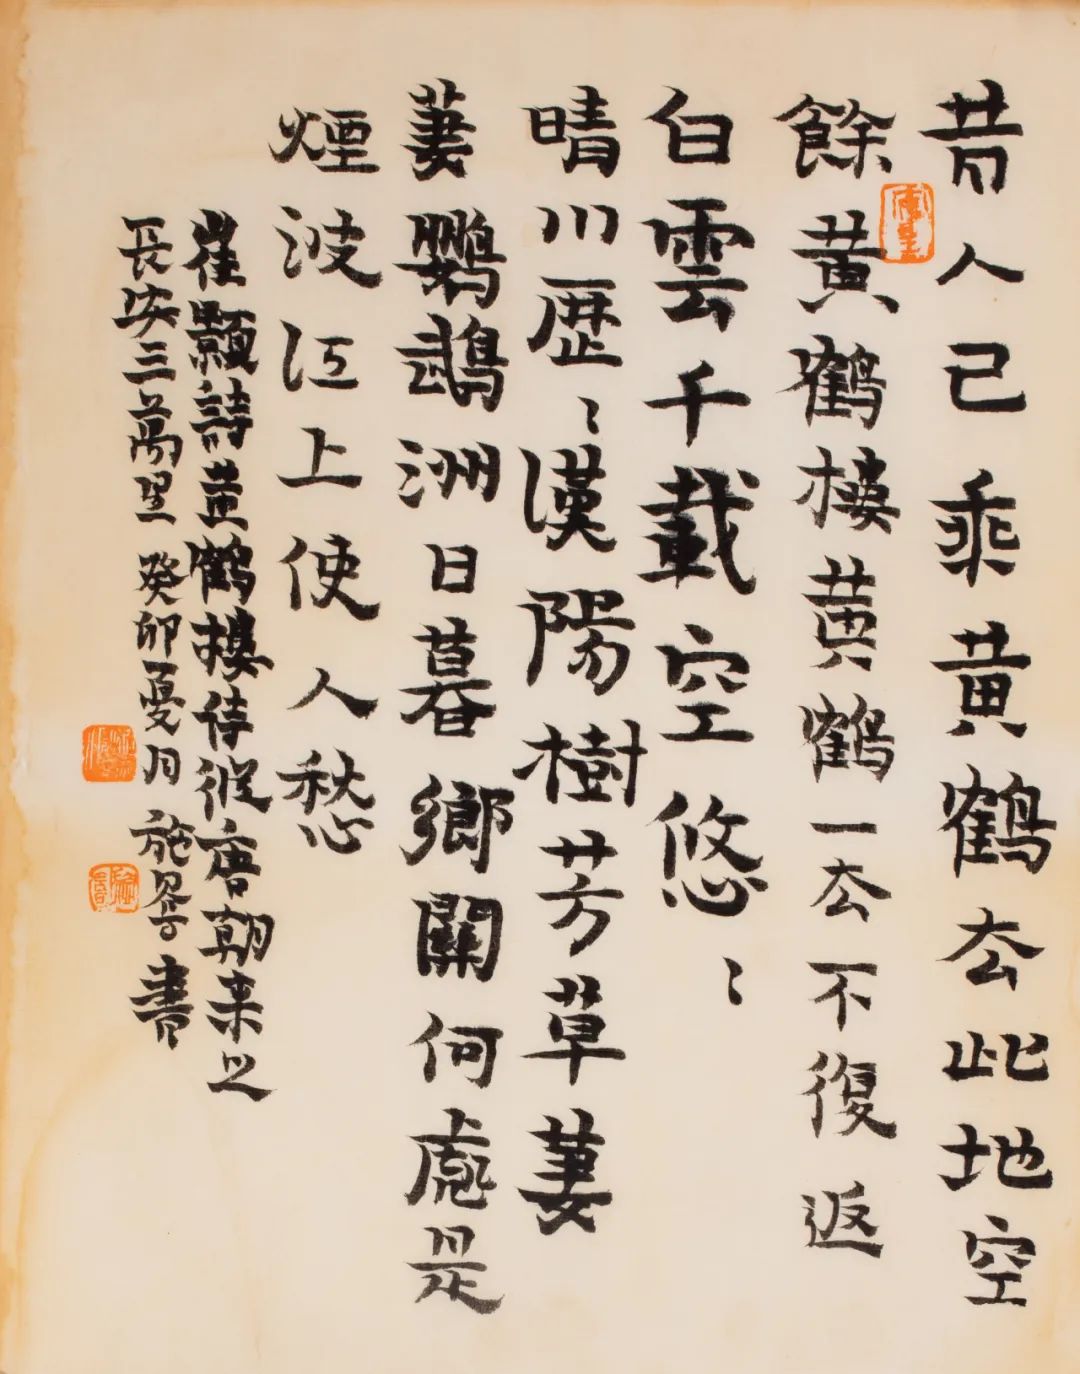 昔人已乘黄鶴去此地空
餘黄鶴樓黄鶴一去不復返
白雲千載空悠〻
晴川歷〻漢陽樹芳草萋
萋鸚鵡洲日暮鄉關何處是
煙波江上使人愁
崔顥詩黄鶴樓從唐朝来之
長安三萬里 癸卯夏月 施書